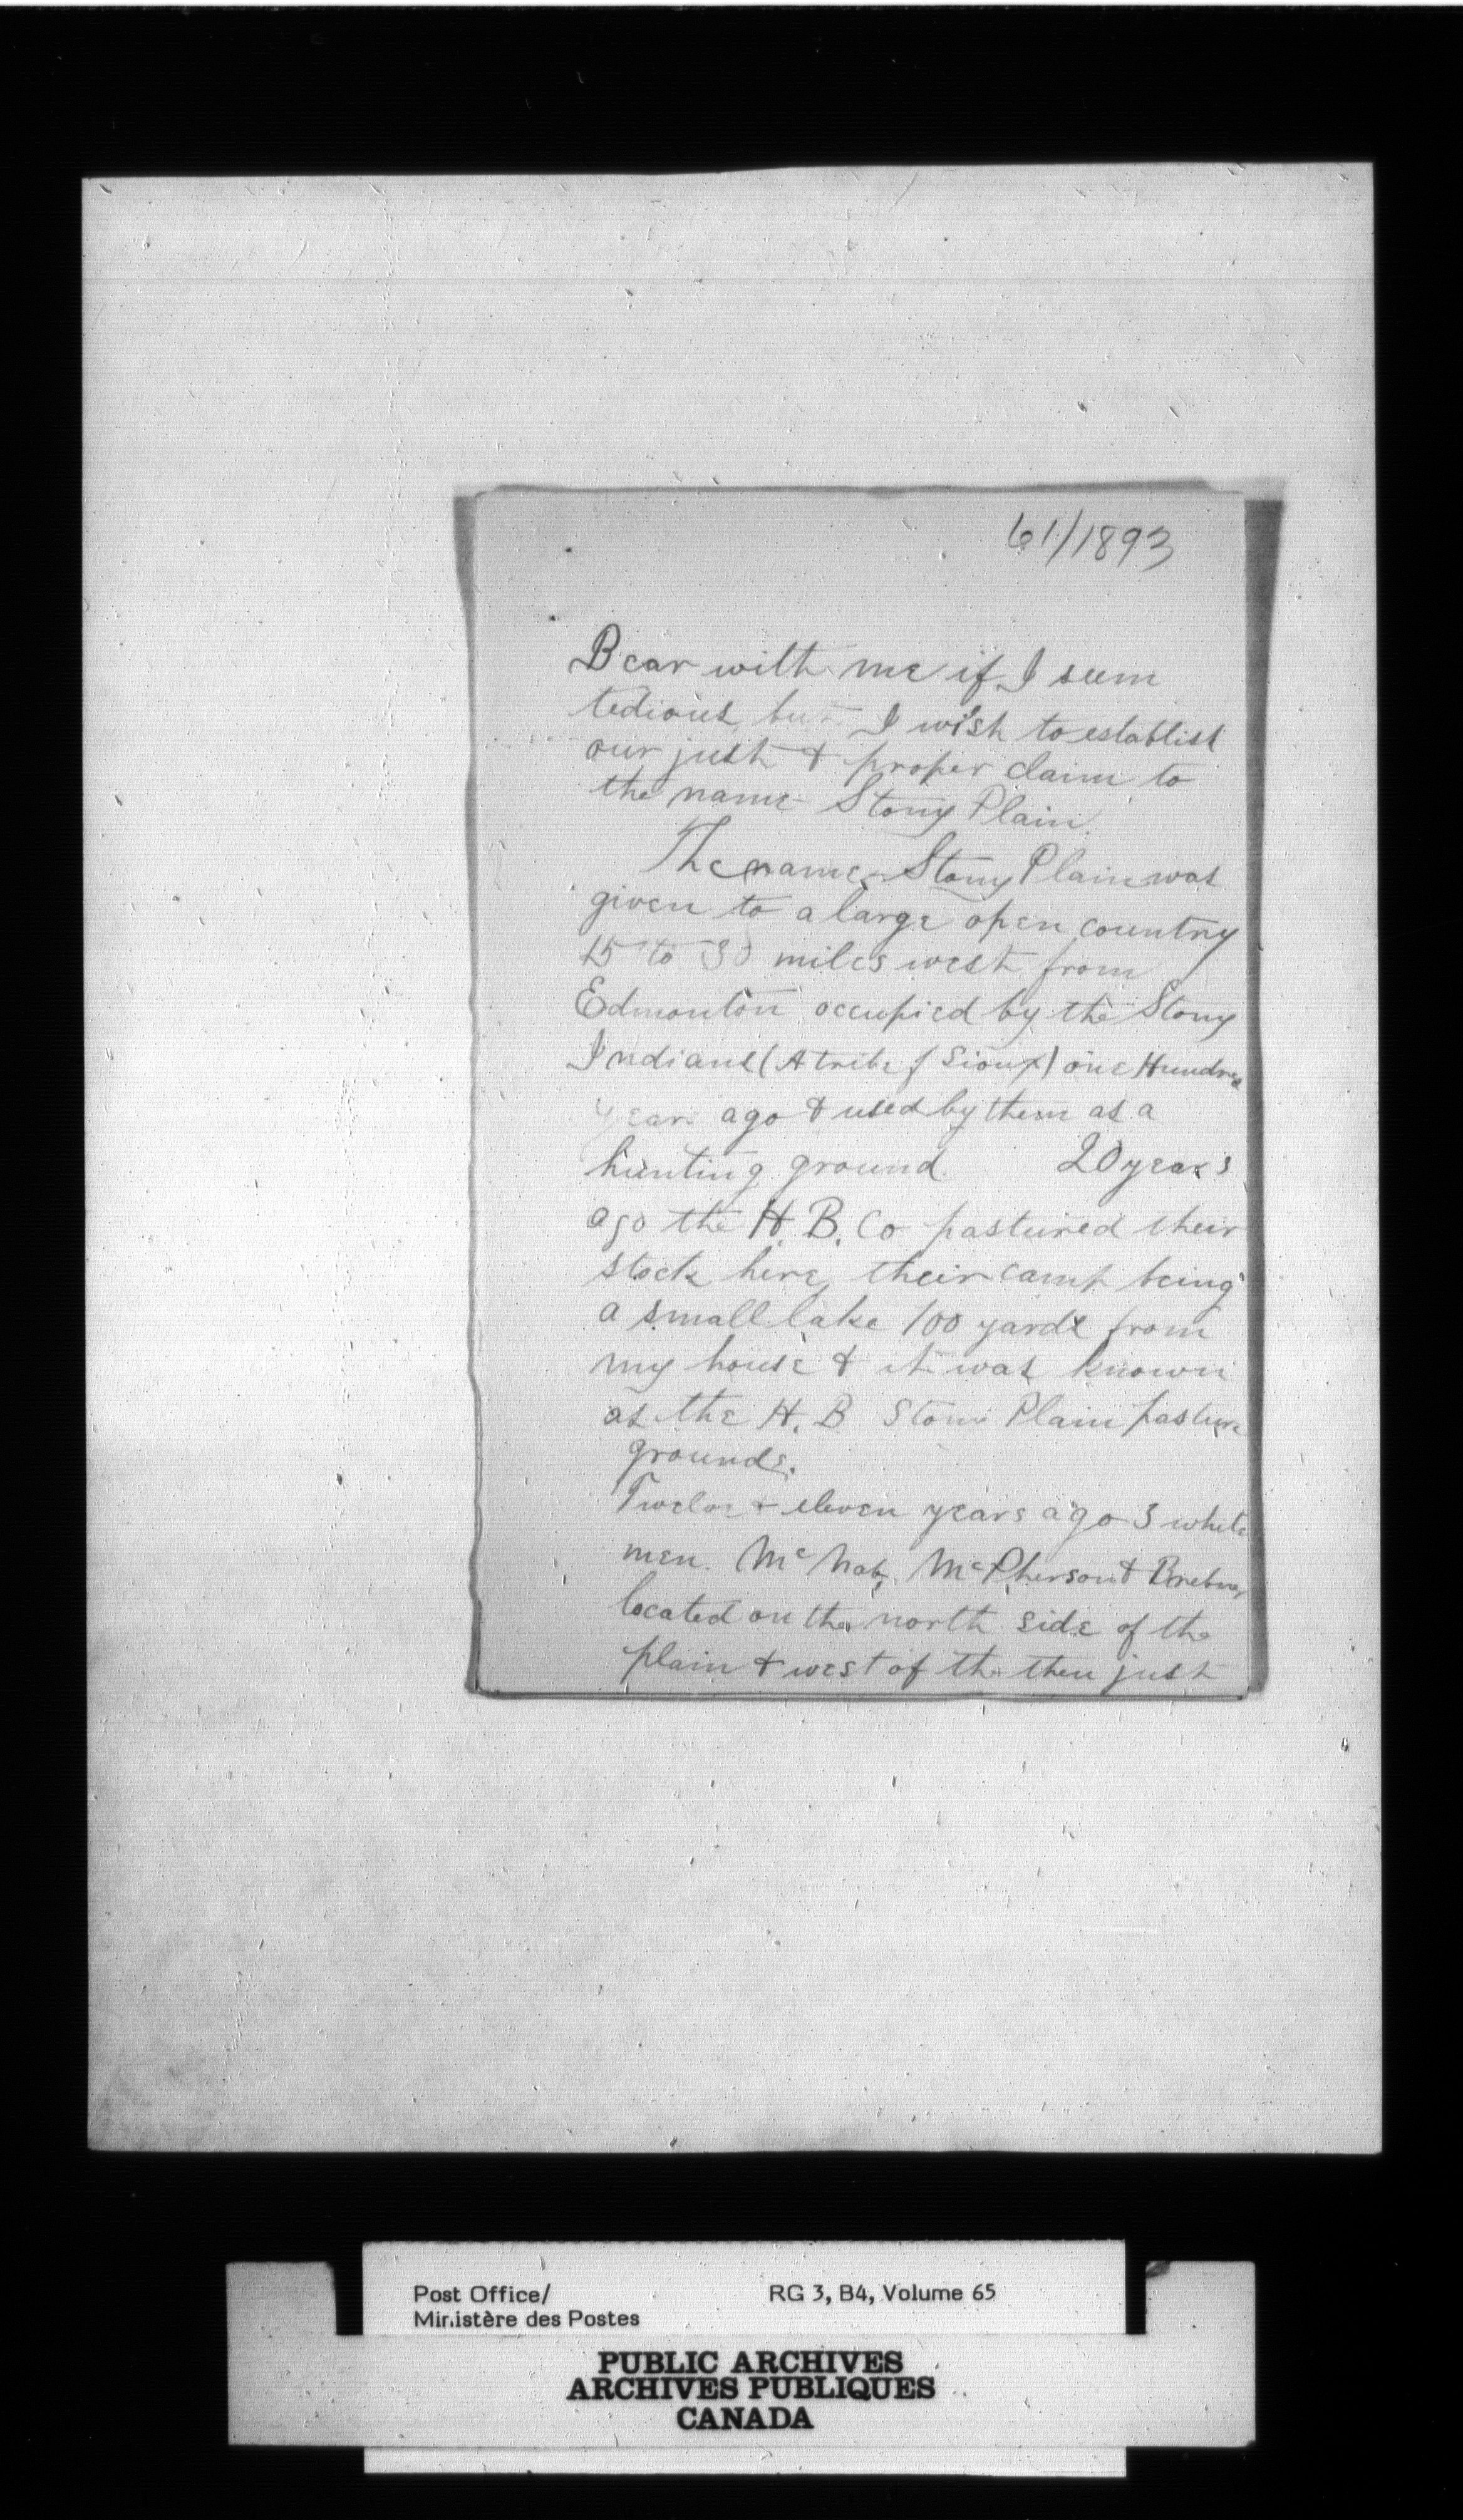 61/1893
Bear with me if I seem
tedious but I wish to establish
our just & proper claim to
the name Stony Plain.
The name Stony Plain was
given to a large open country
15 to 30 miles west from
Edmonton occupied by the Stony
Indians (A tribe of Sioux) one Hundred
years ago & used by them as a
hunting ground. 20 years
ago the H. B. Co pastured their
stock here, their camp being
a small lake 100 yards from
my house & it was known
as the H. B Stony Plain pasture
grounds.
Twelve & eleven years ago 3 white
men. McNab, McPherson & Brebner
located on the north side of the
plain & west of the then just
Post Office/
Ministère des Postes
RG 3, B4, Volume 65
PUBLIC ARCHIVES
ARCHIVES PUBLIQUES
CANADA